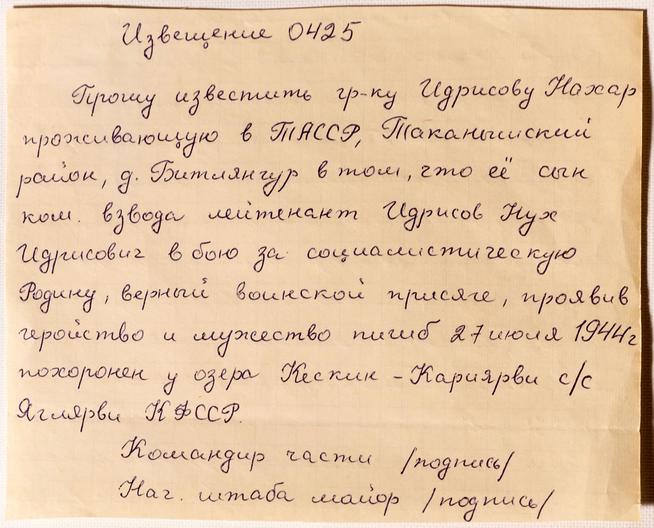 Извещение 0425
Прошу известить гр-ку Идрисову Нахар
проживающую в ТАССР, Таканышский
район, д. Битлянгур в том, что её сын
ком. взвода лейтенант Идрисов Нух
Идрисович в бою за социалистическую
Родину, верный воинской присяге, проявив
геройство и мужество пигиб 27 июля 1944г
похоронен у озера Кескин - Кариярви с/с
Яглярви КФССР.
Командир части /подпись/
Нач. штаба майор /подпись/